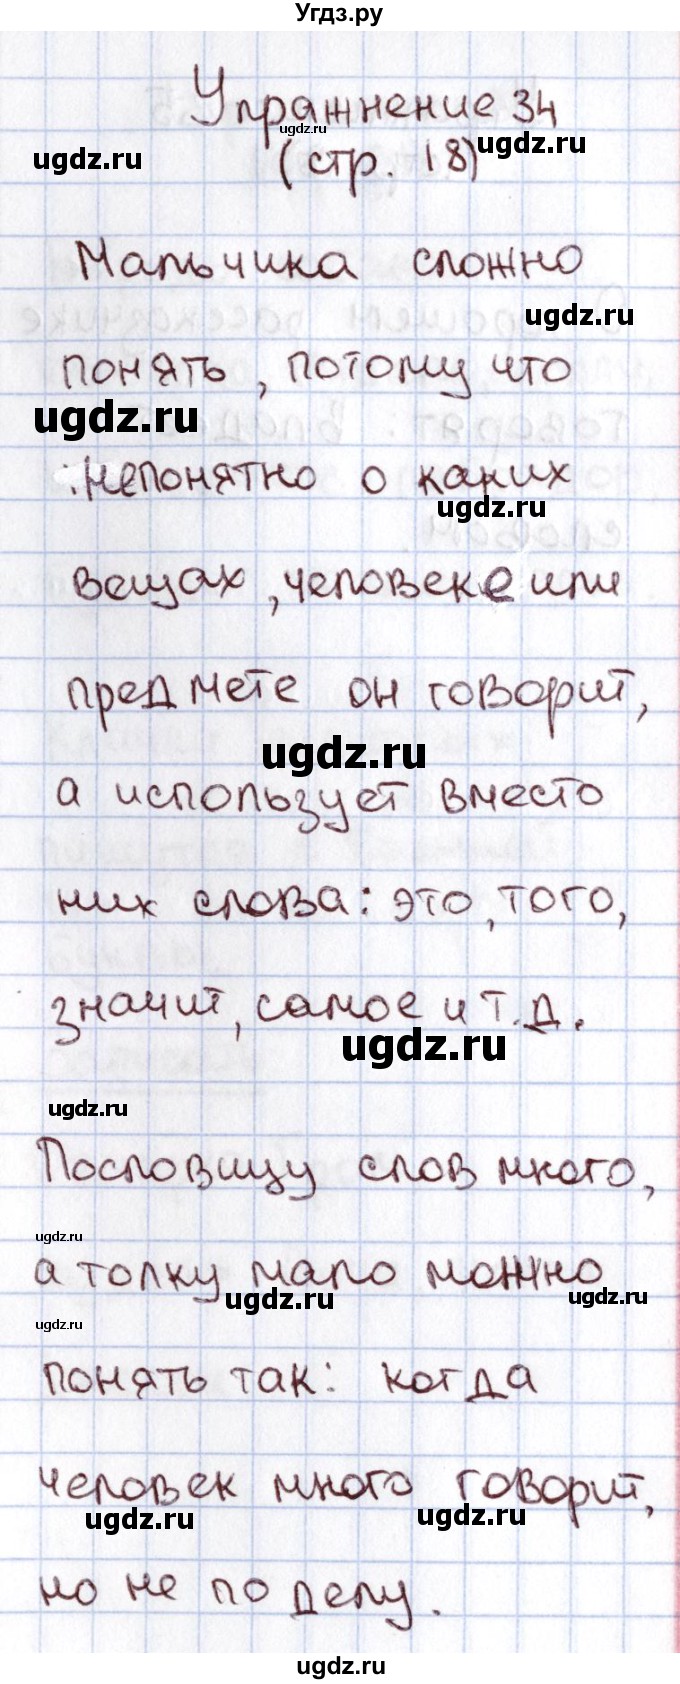 Угдз.ру
Упражнение 34
ugdz.ru
ugdz.ru
ugdz.ru
(стр. 18)
Мальчика сложно
ugdz.ru
понять, потому что
ugdz.ru
непонятно о каких
ugdz.ru
вещах, человеке или
предмете он говорит,
ugdz.ru
а использует вместо
них слова: это, того,
значит, самое и т.д.
ugdz.ru
ugdz.ru
Пословицу слов много,
ugdz.ru
а толку мало можно
ugdz.ru
ugdz.ru
ugdz.ru
понять так: когда
человек много говорит,
ugdz.ru
ugdz.ru
но не по делу.
ugdz.ru